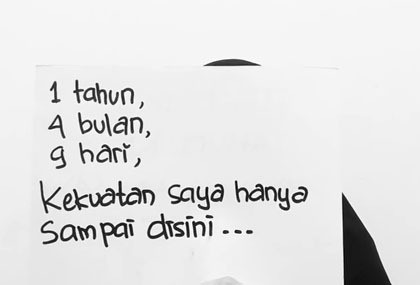 1 tahun,
4 bulan,
9 hari,
Kekuatan saya hanya
Sampai disini...